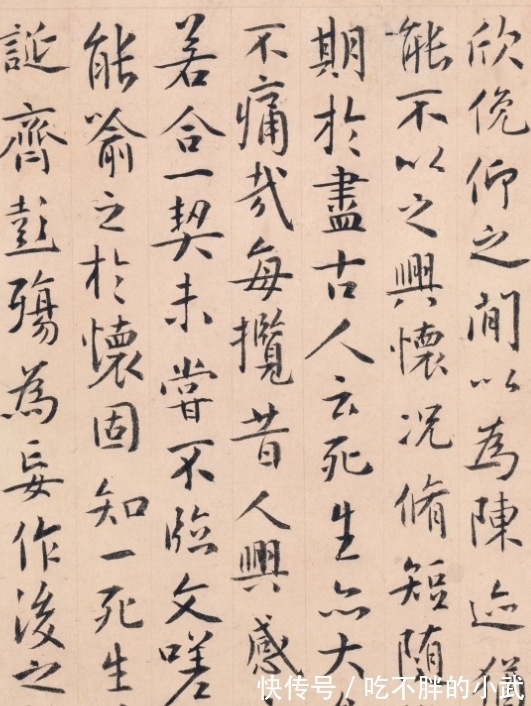 欣俛仰之閒以為陳迹猶
能不以之興懷況脩短随
期於盡古人云死生亦大
不痛哉每攬昔人興感
若合一契未嘗不臨文嗟
能喻之於懷固知一死生
誕齊彭殤為妄作後之
快传号/吃不胖的小武